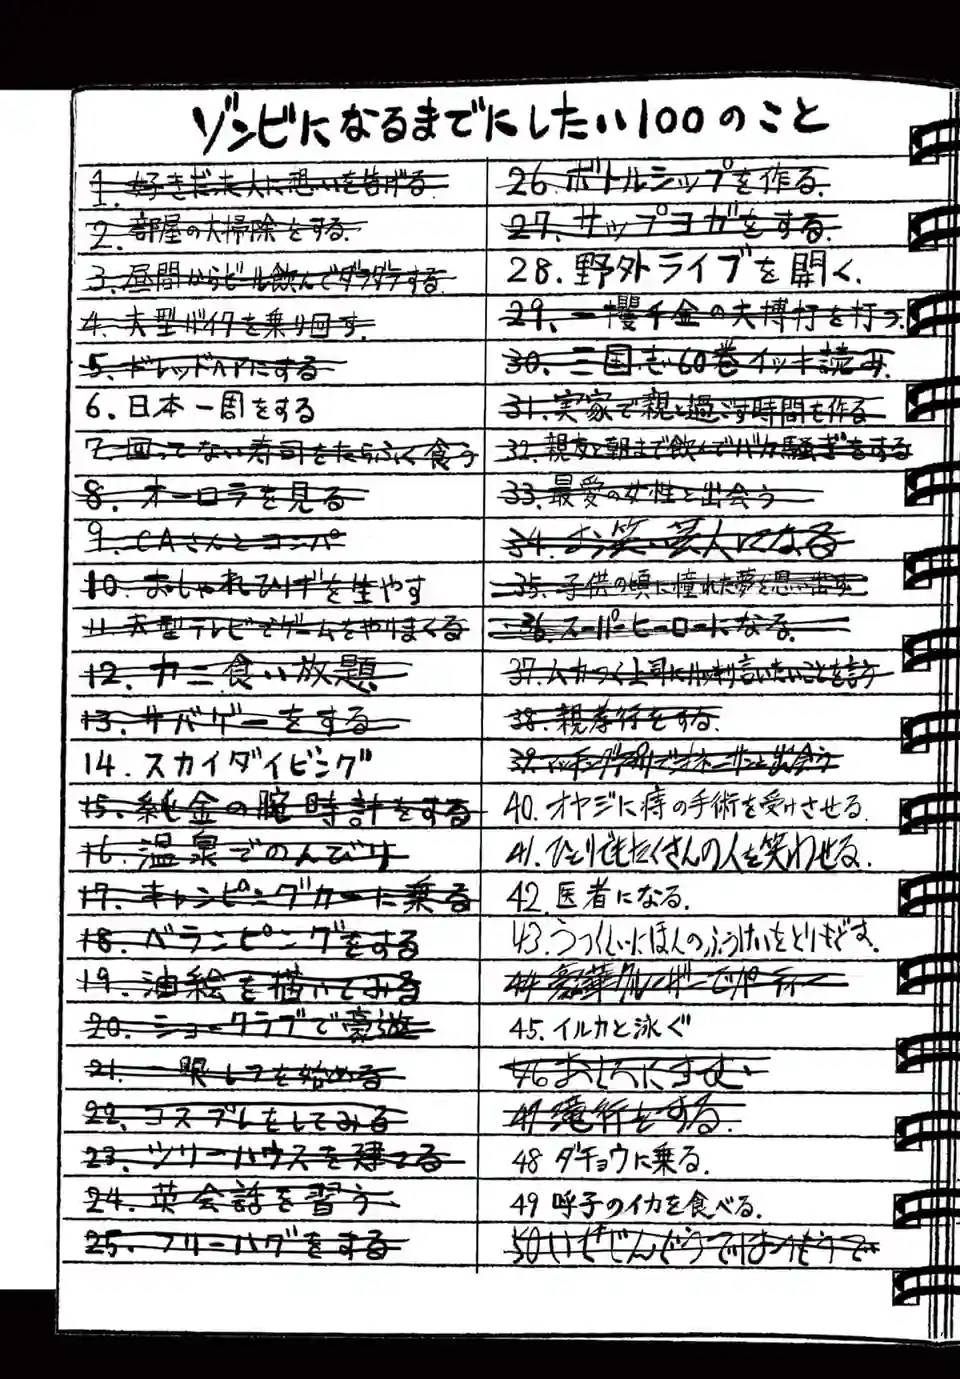 ゾンビになるまでにしたい100のこと
1. 好きだった人に想いを告げる
2. 部屋の大掃除をする.
3. 昼間からビール飲んでダラダラする
4. 大型バイクを乗り回す
5. ドレッドヘアにする
6. 日本一周をする
7. 回ってない寿司をたらふく食う
8. オーロラを見る
9. CAさんとコンパ
10. おしゃれひげを生やす
11. 大型テレビでゲームをやりまくる
12. カニ食い放題
13. サバゲーをする
14. スカイダイビング
15. 純金の腕時計をする
16. 温泉でのんびり
17. キャンピングカーに乗る
18. ベランピングをする
19. 油絵を描いてみる
20. ショークラブで豪遊
21. 一眼レフを始める
22. コスプレをしてみる
23. ツリーハウスを建てる
24. 英会話を習う
25. フリーハグをする
26. ボトルシップを作る.
27. サップヨガをする.
28. 野外ライブを開く.
29. 一攫千金の大博打を打つ.
30. 三国志60巻イッキ読み.
31. 実家で親と過ごす時間を作る
32. 親友と朝まで飲んでバカ騒ぎをする
33. 最愛の女性と出会う
34. お笑い芸人になる
35. 子供の頃に憧れた夢を思い出す
36. スーパーヒーローになる.
37. ムカつく上司にハッキリ言いたいことを言う
38. 親孝行をする.
39. マッチングアプリで出会う
40. オヤジに痔の手術を受けさせる.
41. ひとりでもたくさんの人を笑わせる.
42. 医者になる.
43. うつくしいにほんのふうけいをとりもどす.
44. 豪華クルーザーでパーティー
45. イルカと泳ぐ
46 おしろにすむ
47 滝行をする.
48 ダチョウに乗る.
49 呼子のイカを食べる.
50 いせじんぐうではつもうで